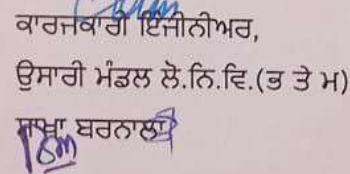 ਕਾਰਜਕਾਰੀ ਇੰਜੀਨੀਅਰ,
ਉਸਾਰੀ ਮੰਡਲ ਲੋ.ਨਿ.ਵਿ.(ਭ ਤੇ ਮ)
ਸ਼ਾਖਾ ਬਰਨਾਲਾ